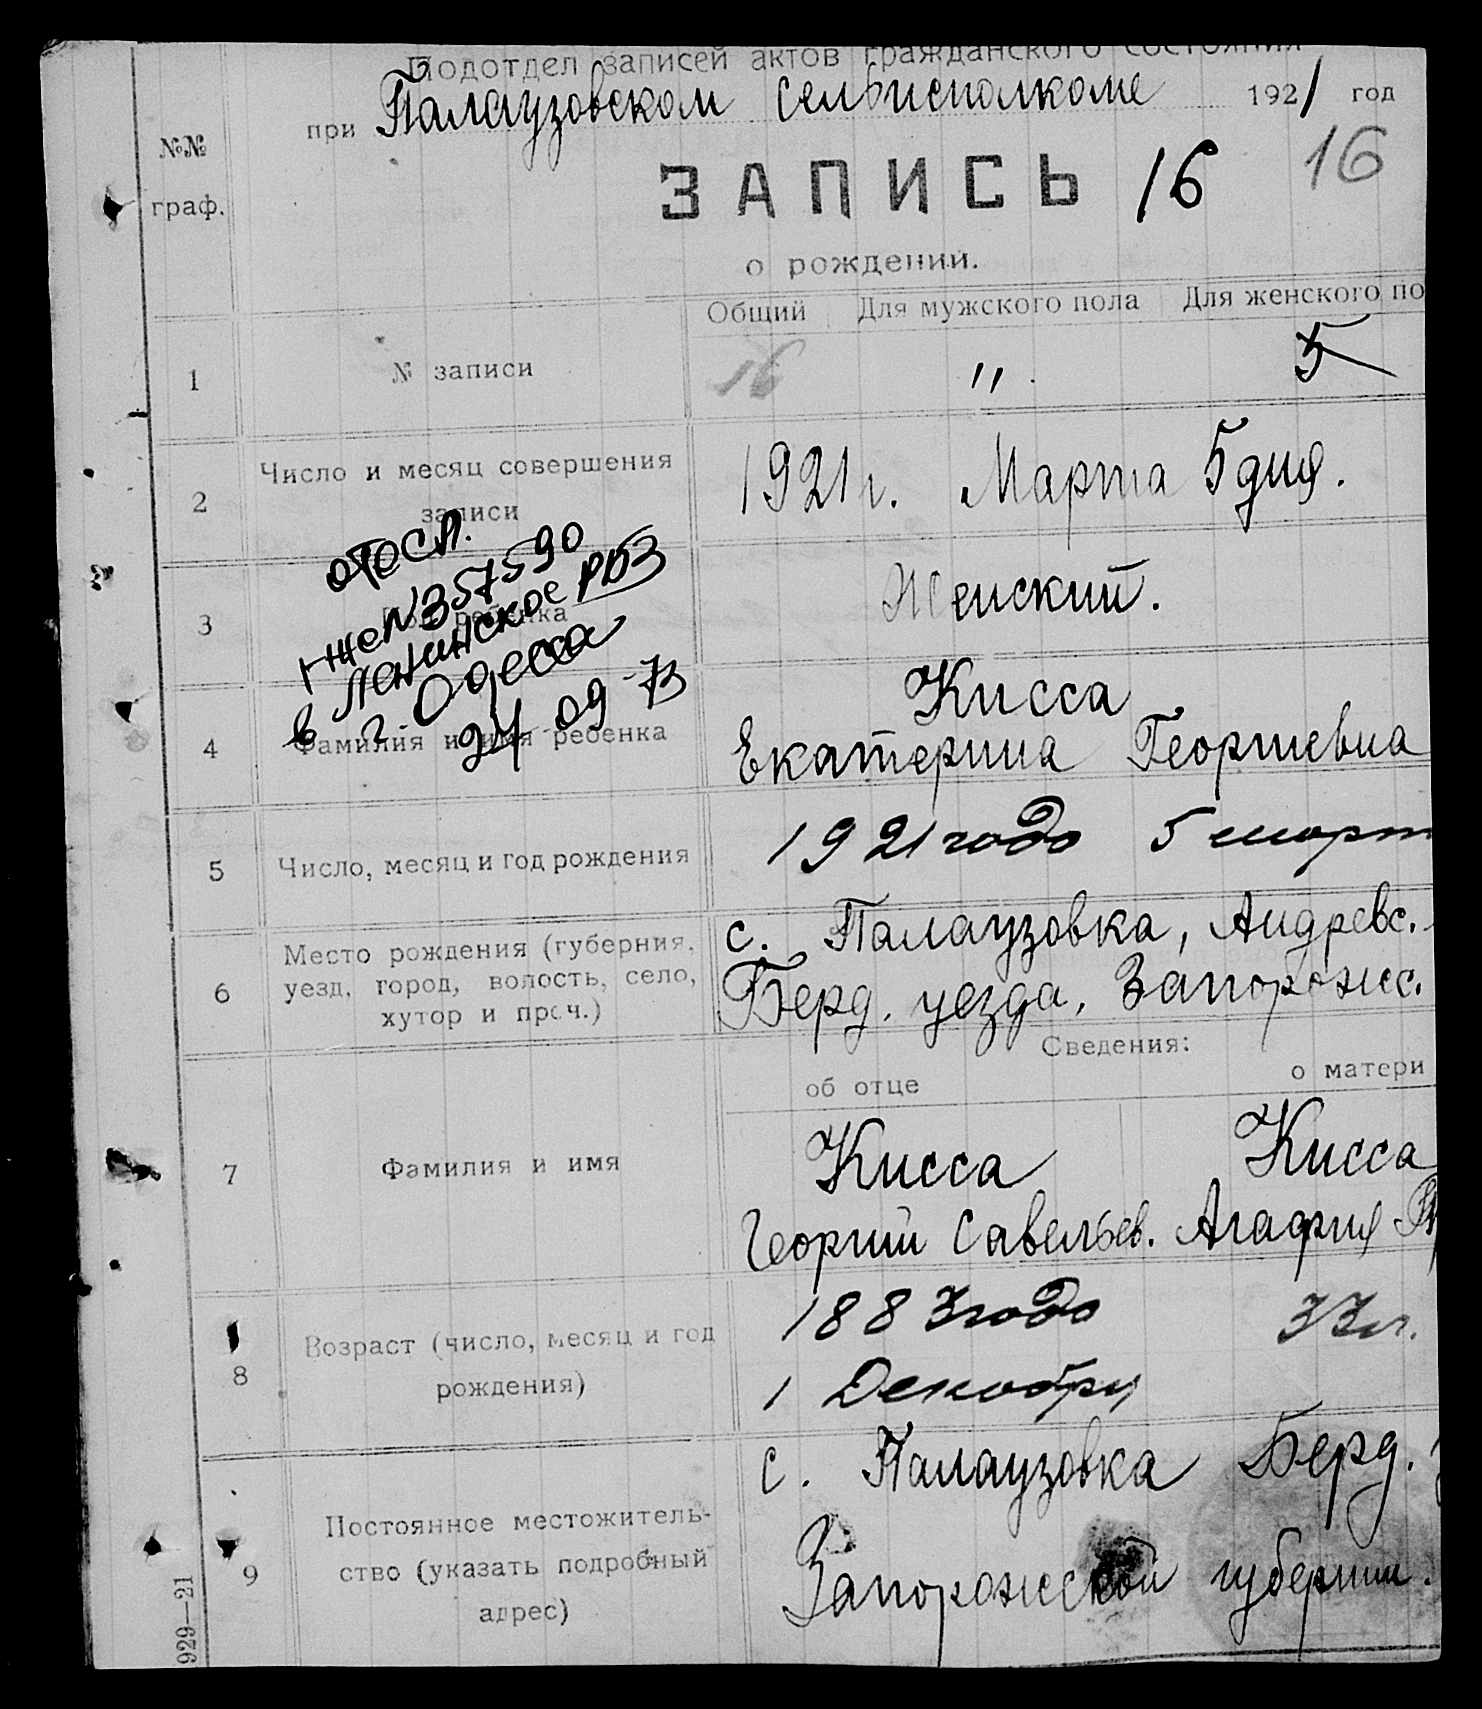 Подотдел записей актов гражданского состояния
при Палаузовском сельисполкоме 1921 год
№№ граф.
ЗАПИСЬ 16 16
о рождении.
Общий Для мужского пола Для женского по
1 № записи 16 " 5
2 Число и месяц совершения записи 1921 г. Марта 5 дня.
отосл.
гже N357590
в Ленинское РБЗ
г. Одесса
24 09-73
3 ребенка Женский.
4 Фамилия и имя ребенка Кисса
Екатерина Георгиевна
5 Число, месяц и год рождения 1921 года 5 март
6 Место рождения (губерния,
уезд, город, волость, село,
хутор и проч.)
с. Палаузовка, Андревс.
Берд. уезда, Запорожс.
Сведения:
об отце о матери
7 Фамилия и имя
Кисса Кисса
Георгий Савельев. Агафия
8 Возраст (число, месяц и год
рождения)
1883 года 33 л.
1 Декабря
9 Постоянное местожитель-
ство (указать подробный
адрес)
с. Палаузовка Берд.
Запорожской губернии.
929—21